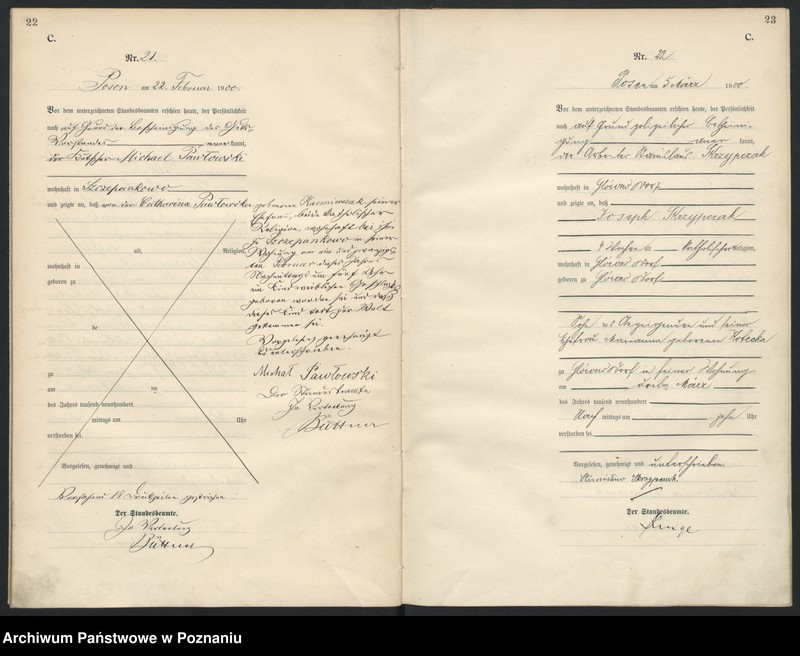 22
C.
Nr. 21.
Posen am 22. Februar 1900.
Vor dem unterzeichneten Standesbeamten erschien heute, der Persönlichkeit
nach auf Grund der Bescheinigung des
Vorstandes kannt,
der Michael Pawlowski
wohnhaft in Szczepankowo
und zeigte an, daß von der Catharina Pawlowska
geborene Kazmierczak seiner
Ehefrau, beide katholischer
Religion, wohnhaft bei ihm
zu Szczepankowo in seiner
Wohnung am
Februar dieses Jahres
Nachmittags um fünf Uhr
ein Kind weiblichen Geschlechts
geboren worden sei und daß
dieses Kind todt zur Welt
gekommen sei.
Vorgelesen, genehmigt
und unterschrieben.
Michał Pawłowski
Der Standesbeamte
In Vertretung
Büttner
alt, Religion,
wohnhaft in
geboren zu
de
zu
am ten
des Jahres tausend neunhundert
mittags um Uhr
verstorben sei.
Vorgelesen, genehmigt und
Vorstehend 18 Druckzeilen gestrichen.
Der Standesbeamte.
In Vertretung
Büttner
23
C.
Nr. 22.
Posen am 5 März 1900.
Vor dem unterzeichneten Standesbeamten erschien heute, der Persönlichkeit
nach auf Grund polizeilicher Beschein-
igung kannt,
der Arbeiter Stanislaus Skrzypczak
wohnhaft in
und zeigte an, daß
Joseph Skrzypczak
4 Wochen alt, katholischer Religion,
wohnhaft in
geboren zu
Sohn des Anzeigenden und seiner
Ehefrau Marianna geborenen
zu in seiner Wohnung
am März
des Jahres tausend neunhundert
Nach mittags um zehn Uhr
verstorben sei.
Vorgelesen, genehmigt und unterschrieben
Skrzypczak.
Der Standesbeamte.
Archiwum Państwowe w Poznaniu